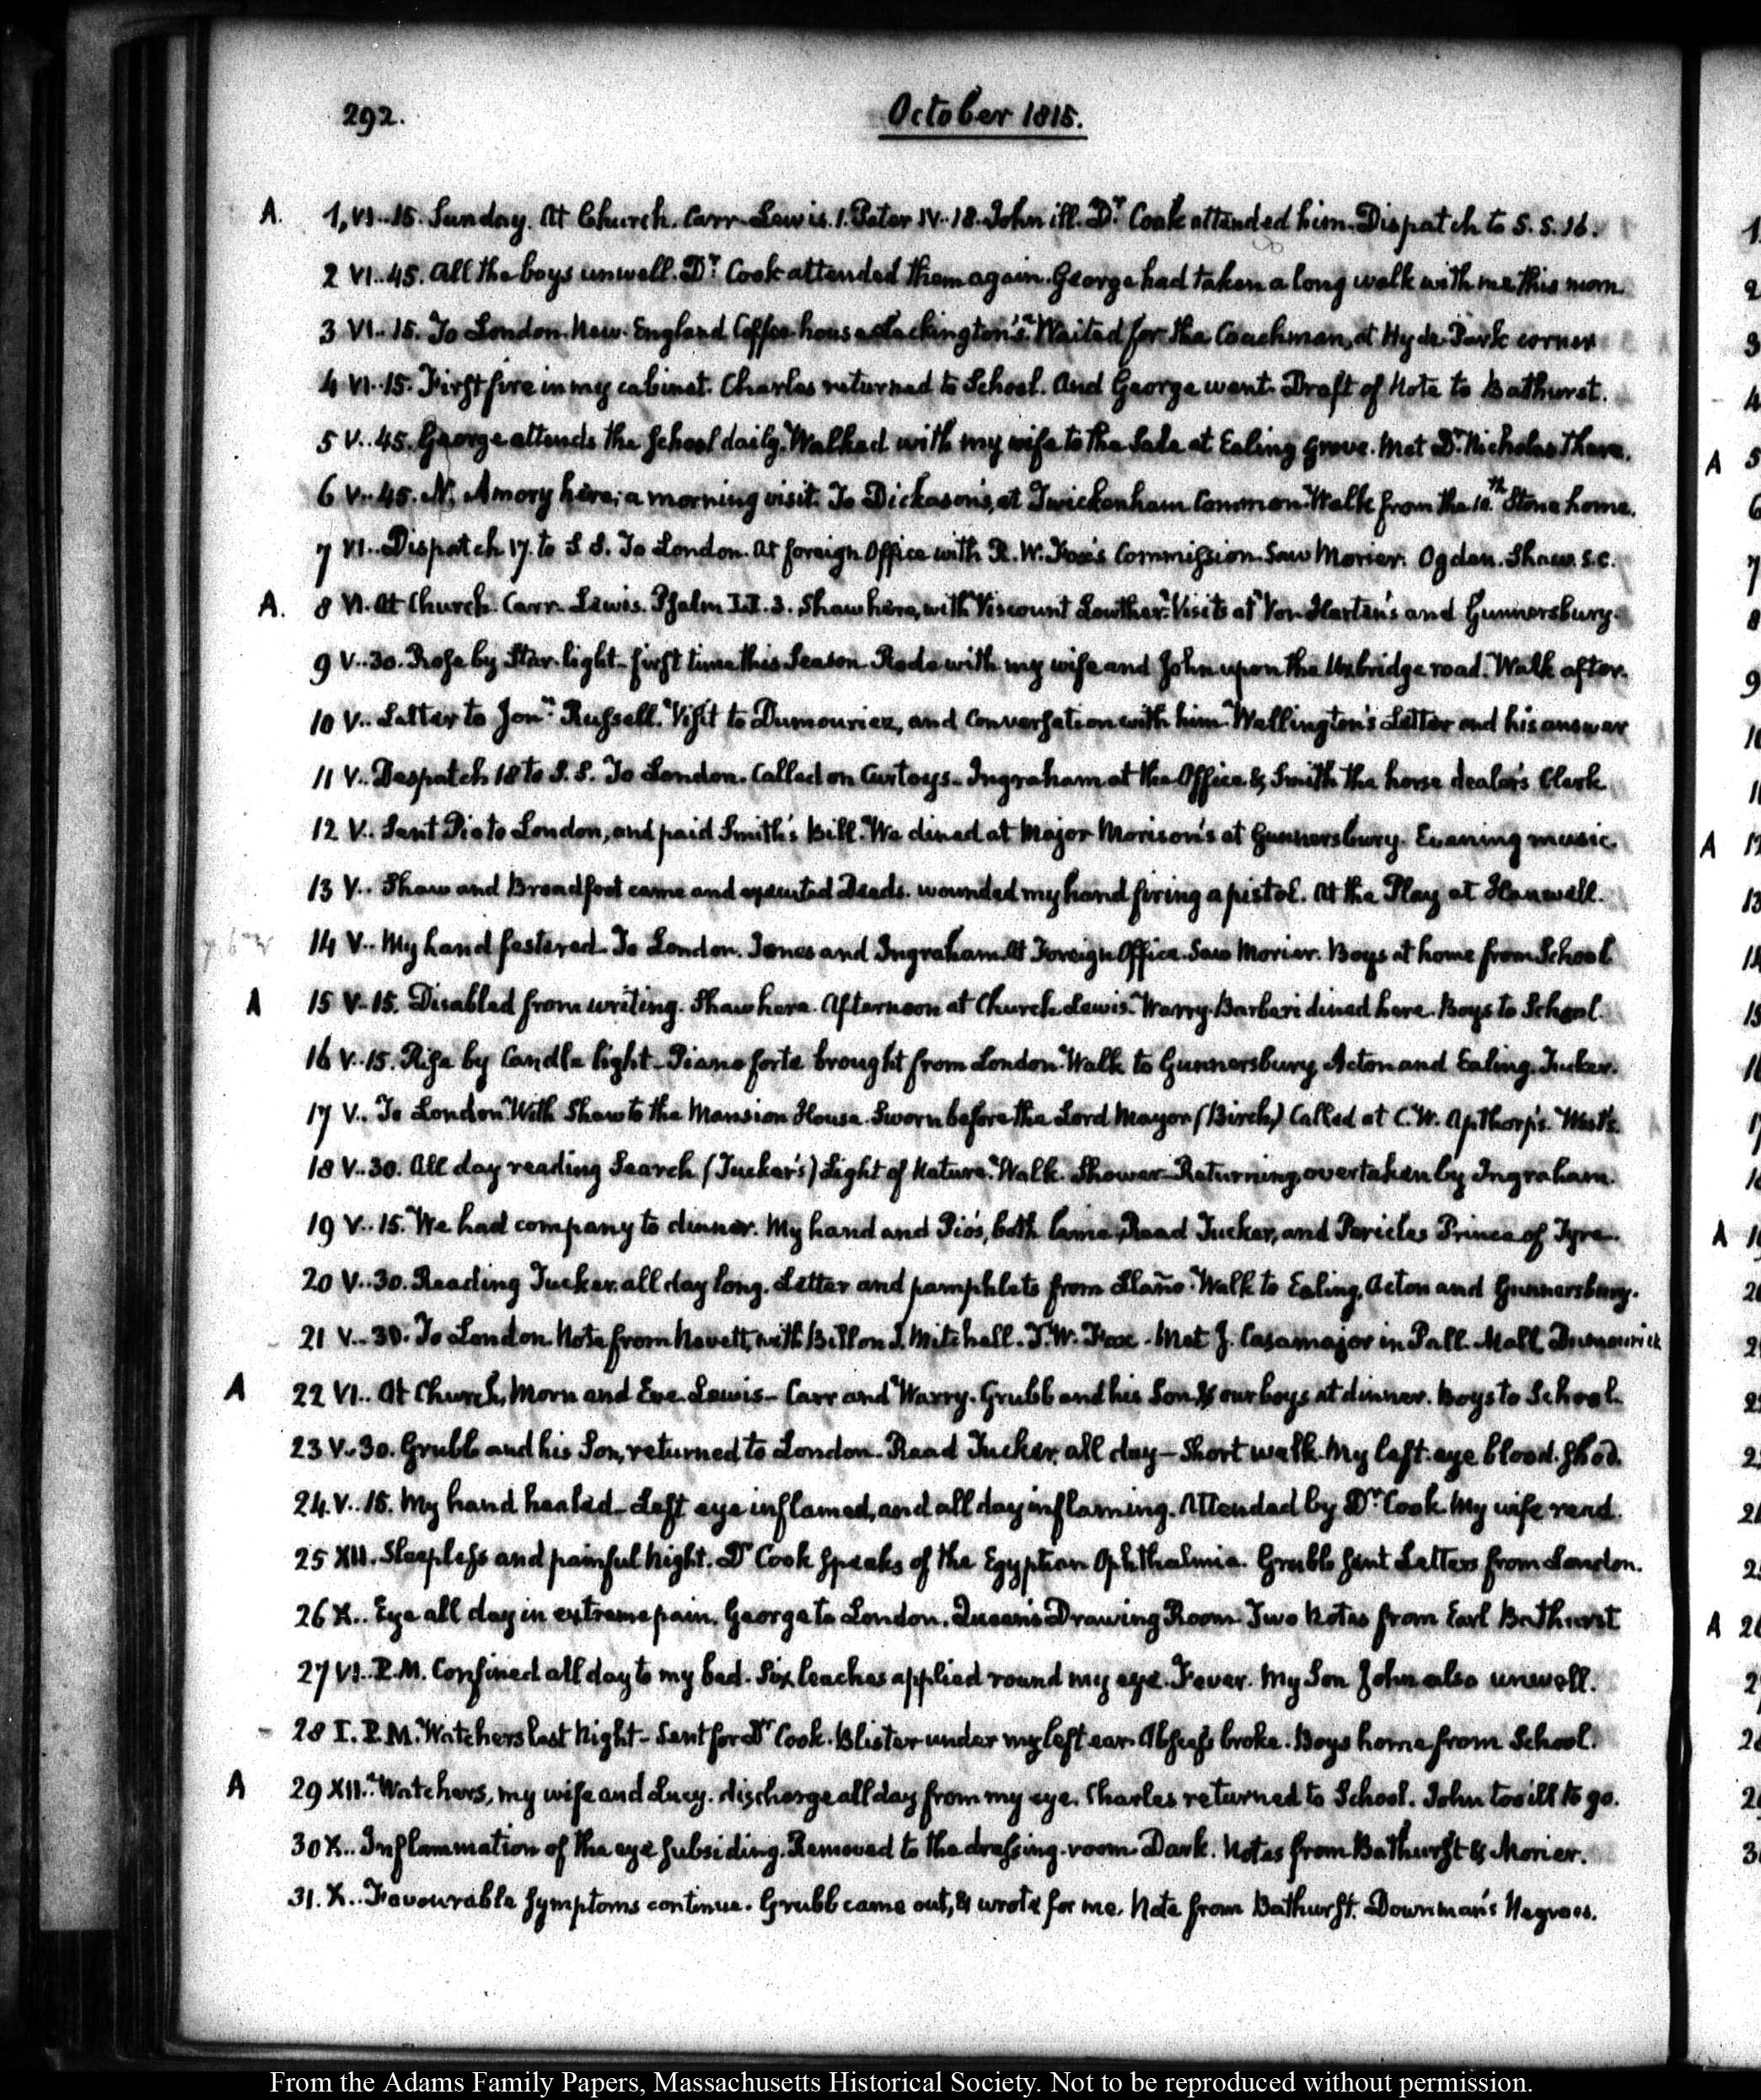 292.
October 1815.
A. 1, VI..15. Sunday. At Church. Carr Lewis. 1. Peter IV. 18. John ill. Dr. Cook attended him. Dispatch to S.S. 16.
2 VI..45. All the boys unwell. Dr. Cook attended them again. George had taken a long walk with me this morn.
3 VI..15. To London. New-England Coffee-house Lackington's. Waited for the Coachman, at Hyde-Park corner
4 VI..15. First fire in my cabinet. Charles returned to School. And George went. Draft of Note to Bathurst.
5 V..45. George attends the School daily. Walked with my wife to the Sale at Ealing grove. Met Dr. Nicholas there.
6 V..45. N. Amory here; a morning visit. To Dickason's, at Twickenham Common. Walk from the 10.th Stone home.
7 VI.. Dispatch 17. to S S. To London. At foreign Office with R. W. Fox's Commission. Saw Morier. Ogden. Shaw. S.C.
A. 8 VI. At Church. Carr. Lewis. Psalm 3. Shaw here, with Viscount Lowther. Visits at Von Harten's and Gunnersbury.
9 V..30. Rose by Star-light—first time this Season. Rode with my wife and John upon the Uxbridge road. Walk after.
10 V.. Letter to Jona. Russell. Visit to Dumouriez, and Conversation with him. Wellington's Letter and his answer
11 V.. Despatch 18 to S. S. To London. Called on Curtoys. Ingraham at the Office & Smith the horse dealer's Clerk
12 V.. Sent Pio to London, and paid Smith's Bill. We dined at Major Morison's at Gunnersbury. Evening music.
13 V.. Shaw and Broadfoot came and executed Deeds. wounded my hand firing a pistol. At the Play at Hanwell.
14 V.. My hand festered. To London. Jones and Ingraham. At Foreign Office. Saw Morier. Boys at home from School
A 15 V..15. Disabled from writing. Shaw here. Afternoon at Church. Lewis. Warry. Barberi dined here. Boys to School.
16 V..15. Rise by Candle light—Piano forte brought from London. Walk to Gunnersbury, Acton and Ealing. Tucker.
17 V.. To London. With Shaw to the Mansion House. Sworn before the Lord Mayor (Birch) Called at C. W. Apthorp's. West's.
18 V..30. All day reading Search (Tucker's) Light of Nature. Walk. Shower—Returning, overtaken by Ingraham.
19 V..15. We had company to dinner. My hand and Pio's, both lame. Read Tucker, and Pericles Prince of Tyre.
20 V..30. Reading Tucker. all day long. Letter and pamphlets from Llaño. Walk to Ealing, Acton and Gunnersbury.
21 V..30. To London. Note from Novett, with Bill on J. Mitchell. T. W. Fox. Met J. Casamajor in Pall-Mall
A 22 VI.. At Church, Morn and Eve. Lewis—Carr and Warry. Grubb and his Son, & our boys at dinner. Boys to School.
23 V..30. Grubb and his Son, returned to London. Read Tucker, all day—Short walk. My left-eye blood-shod.
24. V..15. My hand healed—Left eye inflamed, and all day inflaming. Attended by Dr. Cook. My wife read.
25 XII. Sleepless and painful Night. Dr Cook Speaks of the Egyptian Ophthalmia. Grubb sent Letters from London.
26 X.. Eye all day in extreme pain. George to London. Queen's Drawing Room. Two Notes from Earl Bathurst
27 VI. P.M. Confined all day to my bed. Six leaches applied round my eye. Fever. My Son John also unwell.
28 I. P.M. Watchers last Night—Sent for Dr Cook. Blister under my left ear. Abscess broke. Boys home from School.
A 29 XII. Watchers, my wife and Lucy. discharge all day from my eye. Charles returned to School. John too ill to go.
30 X.. Inflammation of the eye subsiding. Removed to the dressing-room. Dark. Notes from Bathurst & Morier.
31. X.. Favourable Symptoms continue. Grubb came out, & wrote for me. Note from Bathurst. Downman's Negroes.
From the Adams Family Papers, Massachusetts Historical Society. Not to be reproduced without permission.